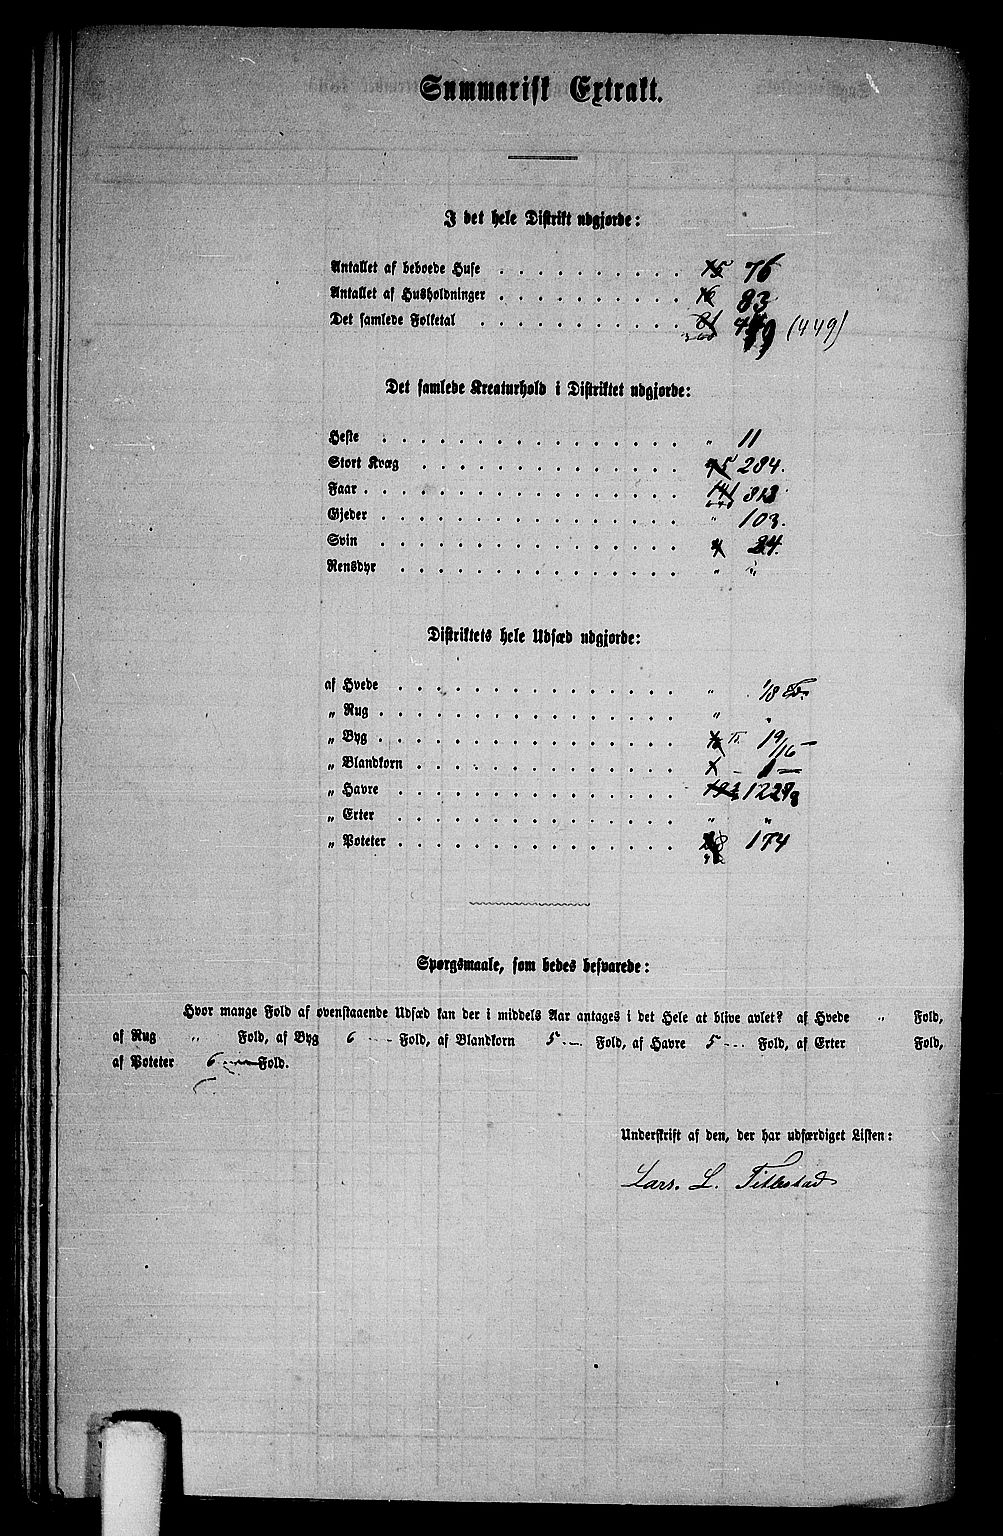 Summarisk Extrakt.
I det hele Distrikt udgjorde:
Antallet af beboede Huse . . . . . . . . . . 15 76
Antallet af Husholdninger . . . . . . . . . . 16 83
Det samlede Folketal . . . . . . . . . . (449)
Det samlede Kreaturhold i Distriktet udgjorde:
Heste . . . . . . . . . . „ 11
Stort Kvæg . . . . . . . . . . 284.
Faar . . . . . . . . . . 141 313
Gjeder . . . . . . . . . . „ 103.
Svin . . . . . . . . . . 24.
Rensdyr . . . . . . . . . . „ „
Distriktets hele Udsæd udgjorde:
af Hvede . . . . . . . . . . „ 1/8
„ Rug . . . . . . . . . . „ „
„ Byg . . . . . . . . . . Tr. 19/16 —
„ Blandkorn . . . . . . . . . . — 1 —
„ Havre . . . . . . . . . .
„ Erter . . . . . . . . . . „ „
„ Poteter . . . . . . . . . . 174
Spørgsmaale, som bedes besvarede:
Hvor mange Fold af ovenstaaende Udsæd kan der i middels Aar antages i det Hele at blive avlet? af Hvede „ Fold,
af Rug „ Fold, af Byg 6 Fold, af Blandkorn 5 Fold, af Havre 5 Fold, af Erter Fold,
af Poteter 6 Fold.
Underskrift af den, der har udfærdiget Listen:
Lars. L. Titlestad